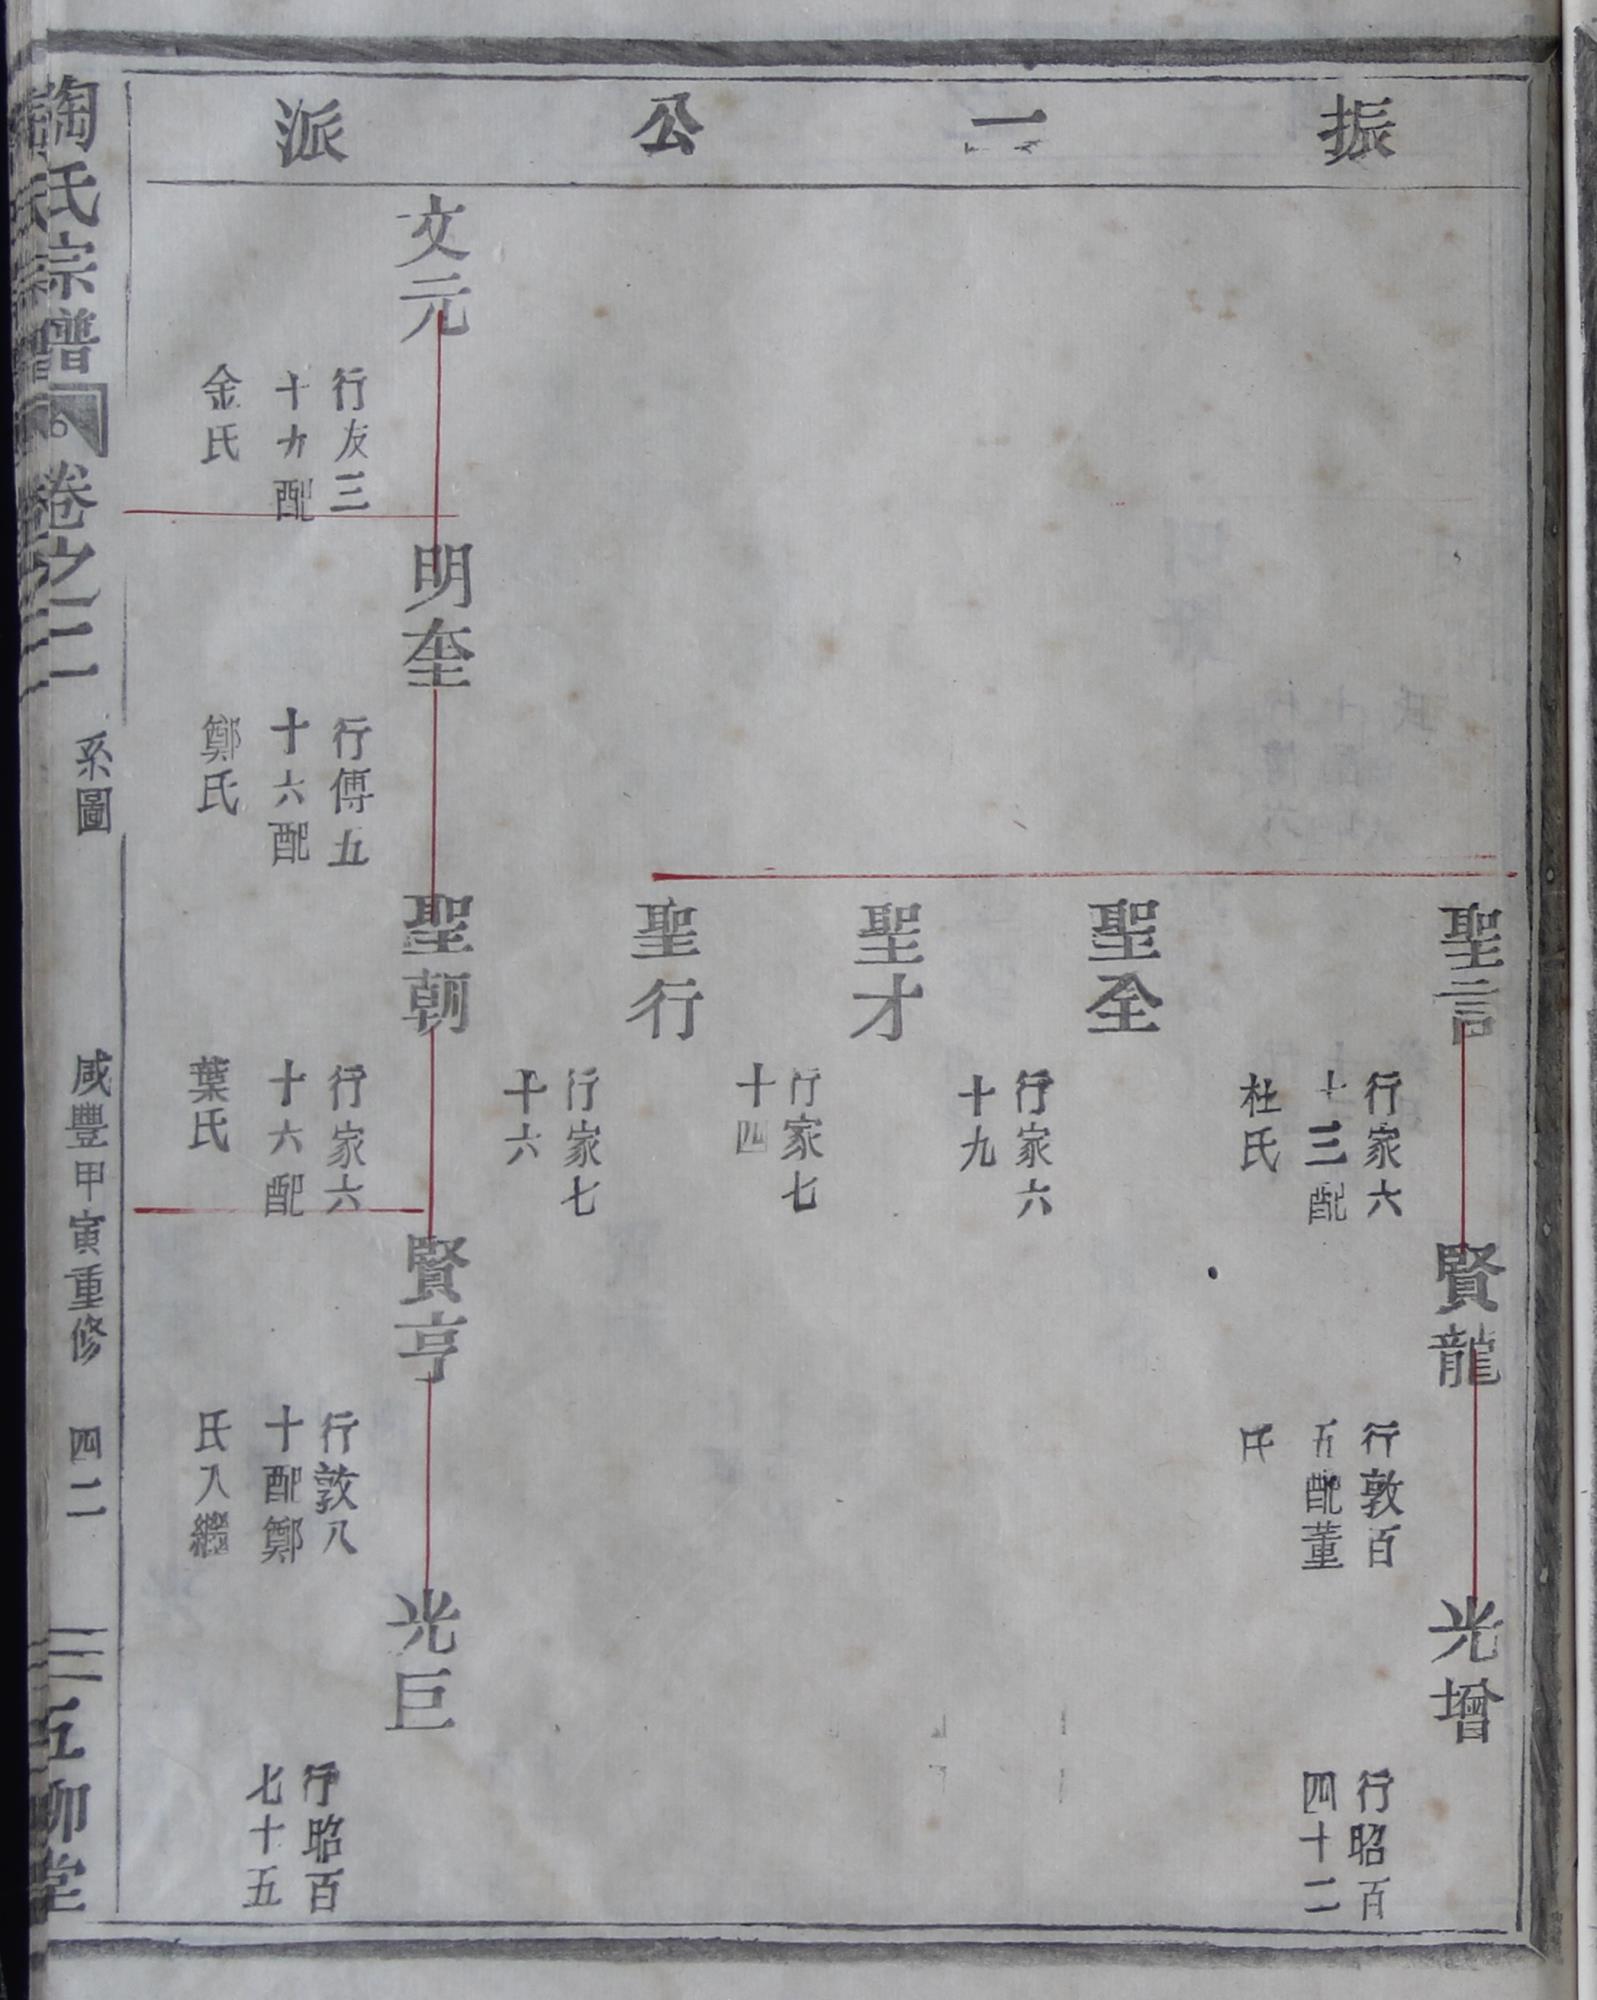 振二公派
聖言
行家六
十三配
杜氏
賢龍
行敦百
五配董
氏
光增
行昭百
四十二
聖全
行家六
十九
聖才
行家七
十四
聖行
行家七
十六
文元
行友三
十九配
金氏
明奎
行傅五
十六配
鄭氏
聖朝
行家六
十六配
葉氏
賢亨
行敦八
十配鄭
氏入繼
光巨
行昭百
七十五
陶氏宗譜
卷之二
系圖
咸豐甲寅重修
四二
五柳堂